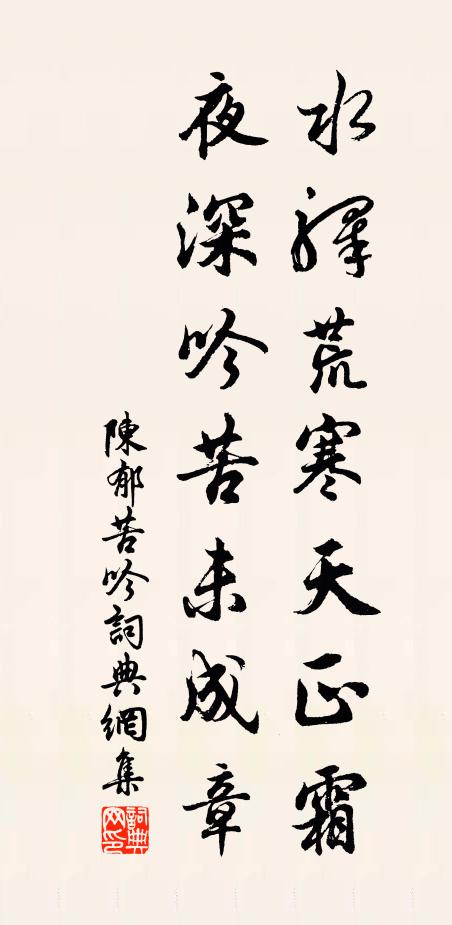 水驛荒寒天正霜
夜深吟苦未成章
陳郁苦吟詞典網集
詞典
网印